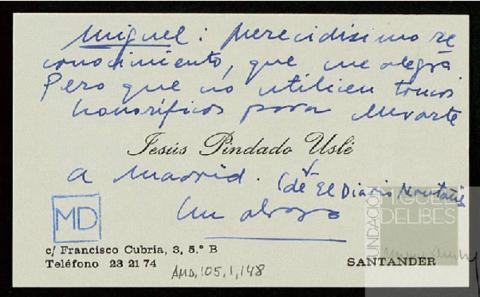 Miguel: merecidísimo re
conocimiento, que me alegra
Pero que no utilicen trucos
honoríficos para llevarte
Jesús Pindado Uslé
a Madrid. (de El Diario Montañés
Un abrazo
MD
c/ Francisco Cubría, 3, 5.º B
Teléfono 23 21 74
AMD, 105, 1, 148
SANTANDER
FUNDACIÓN
MIGUEL
DELIBES